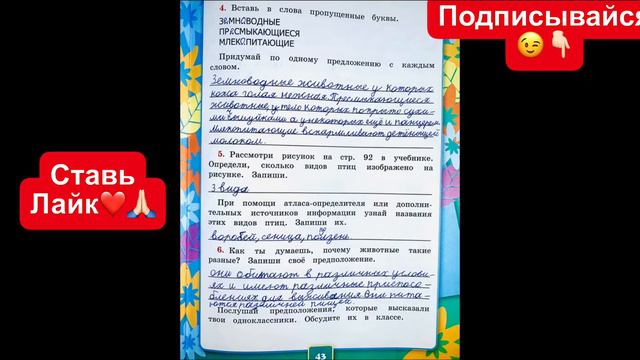 Подписывайся
😉👇🏻
Ставь
Лайк❤️🙏🏻
4. Вставь в слова пропущенные буквы.
ЗЕМНОВОДНЫЕ
ПРЕСМЫКАЮЩИЕСЯ
МЛЕКОПИТАЮЩИЕ
Придумай по одному предложению с каждым
словом.
Земноводные животные у которых
кожа голая нежная. Пресмыкающиеся
животные, у тело которых покрыто сухи-
ми чешуйками а у некоторых ещё и панцирем
Млекопитающие вскармливают детёнышей
молоком.
5. Рассмотри рисунок на стр. 92 в учебнике.
Определи, сколько видов птиц изображено на
рисунке. Запиши.
3 вида
При помощи атласа-определителя или дополни-
тельных источников информации узнай названия
этих видов птиц. Запиши их.
воробей, синица,
6. Как ты думаешь, почему животные такие
разные? Запиши своё предположение.
они обитают в различных услови-
ях и имеют различные приспосо-
блениях для выживания
Послушай предположения, которые высказали
твои одноклассники. Обсудите их в классе.
43